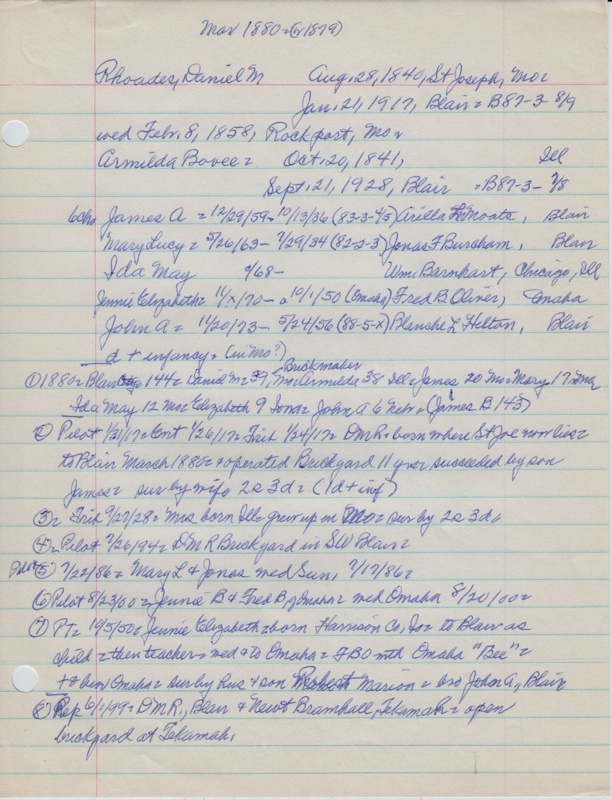 Mar 1880 = (or 1879)
Rhoades, Daniel M Aug, 28, 1840, St Joseph, Mo =
Jan, 21, 1917, Blair = B87-3- 8/9
wed Feb. 8, 1858, Rockport, Mo =
Armilda Bovee = Oct, 20, 1841, Ill
Sept, 21, 1928, Blair = B87-3- 7/8
6 chn James A = 12/29/59 - 10/13/36 (83-3-4/5) Arilla Moats, Blair
Mary Lucy = 5/26/63 - 7/29/34 (82-2-3) Jonas F Burcham, Blair
Ida May /68 - Wm. Barnhart, Chicago, Ill
Jennie Elizabeth = 11/x/70 - a 10/1/50 (Omaha) Fred B. Oliver, Omaha
John A = 11/20/73 - 5/24/56 (88-5-x) Blanche L Hilton, Blair
d + infancy = (in Mo?)
① 1880 = Blair 144 = Daniel M = 39, Mo = Brickmaker Armilda 38 Ill = James 20 Mo = Mary 17 Mo
Ida May 12 Mo = Elizabeth 9 Iowa = John A 6 Neb = (James B 145)
② Pilot 1/31/17 = Ent 1/26/17 = Trib 1/24/17 = DMR = born where St Joe now lies =
to Blair March 1880 = + operated Brickyard 11 yrs = succeeded by son
James = sur by wife 2s 3d = (1d + inf)
③ = Trib 9/27/28 = Mrs born Ill = grew up in Mo = sur by 2s 3d =
④ = Pilot 7/26/94 = DMR Brickyard in SW Blair =
Pilot ⑤ 7/22/86 = Mary L & Jonas wed Sun, 7/17/86 =
⑥ Pilot 8/23/00 = Jennie B & Fred B of Omaha = wed Omaha 8/20/00 =
⑦ PT = 10/5/50 = Jennie Elizabeth = born Harrison Co, Ia = to Blair as
child = then teacher = wed & to Omaha = FBO with Omaha "Bee" =
+ & bur Omaha = sur by hus & son Marion = bro John A, Blair
⑧ Rep 6/1/99 = DMR, Blair & Newt Bramhall, Tekamah = open
brickyard at Tekamah,